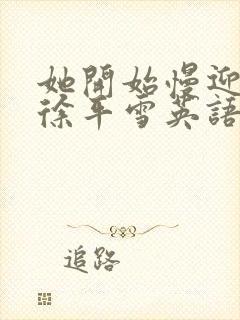 她開始慢迎
徐平雪英語
追路